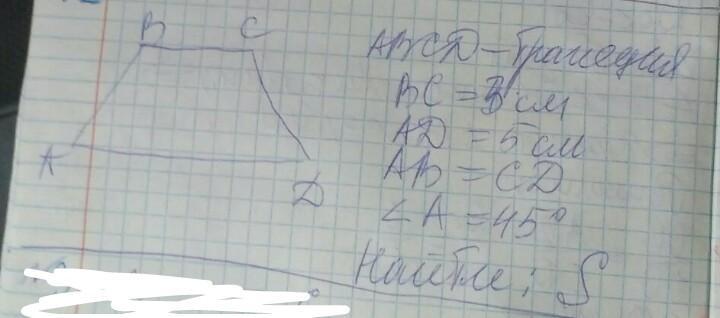 B C
A D
ABCD - трапеция
BC = 3 см
AD = 5 см
AB = CD
∠A = 45°
Найти: S